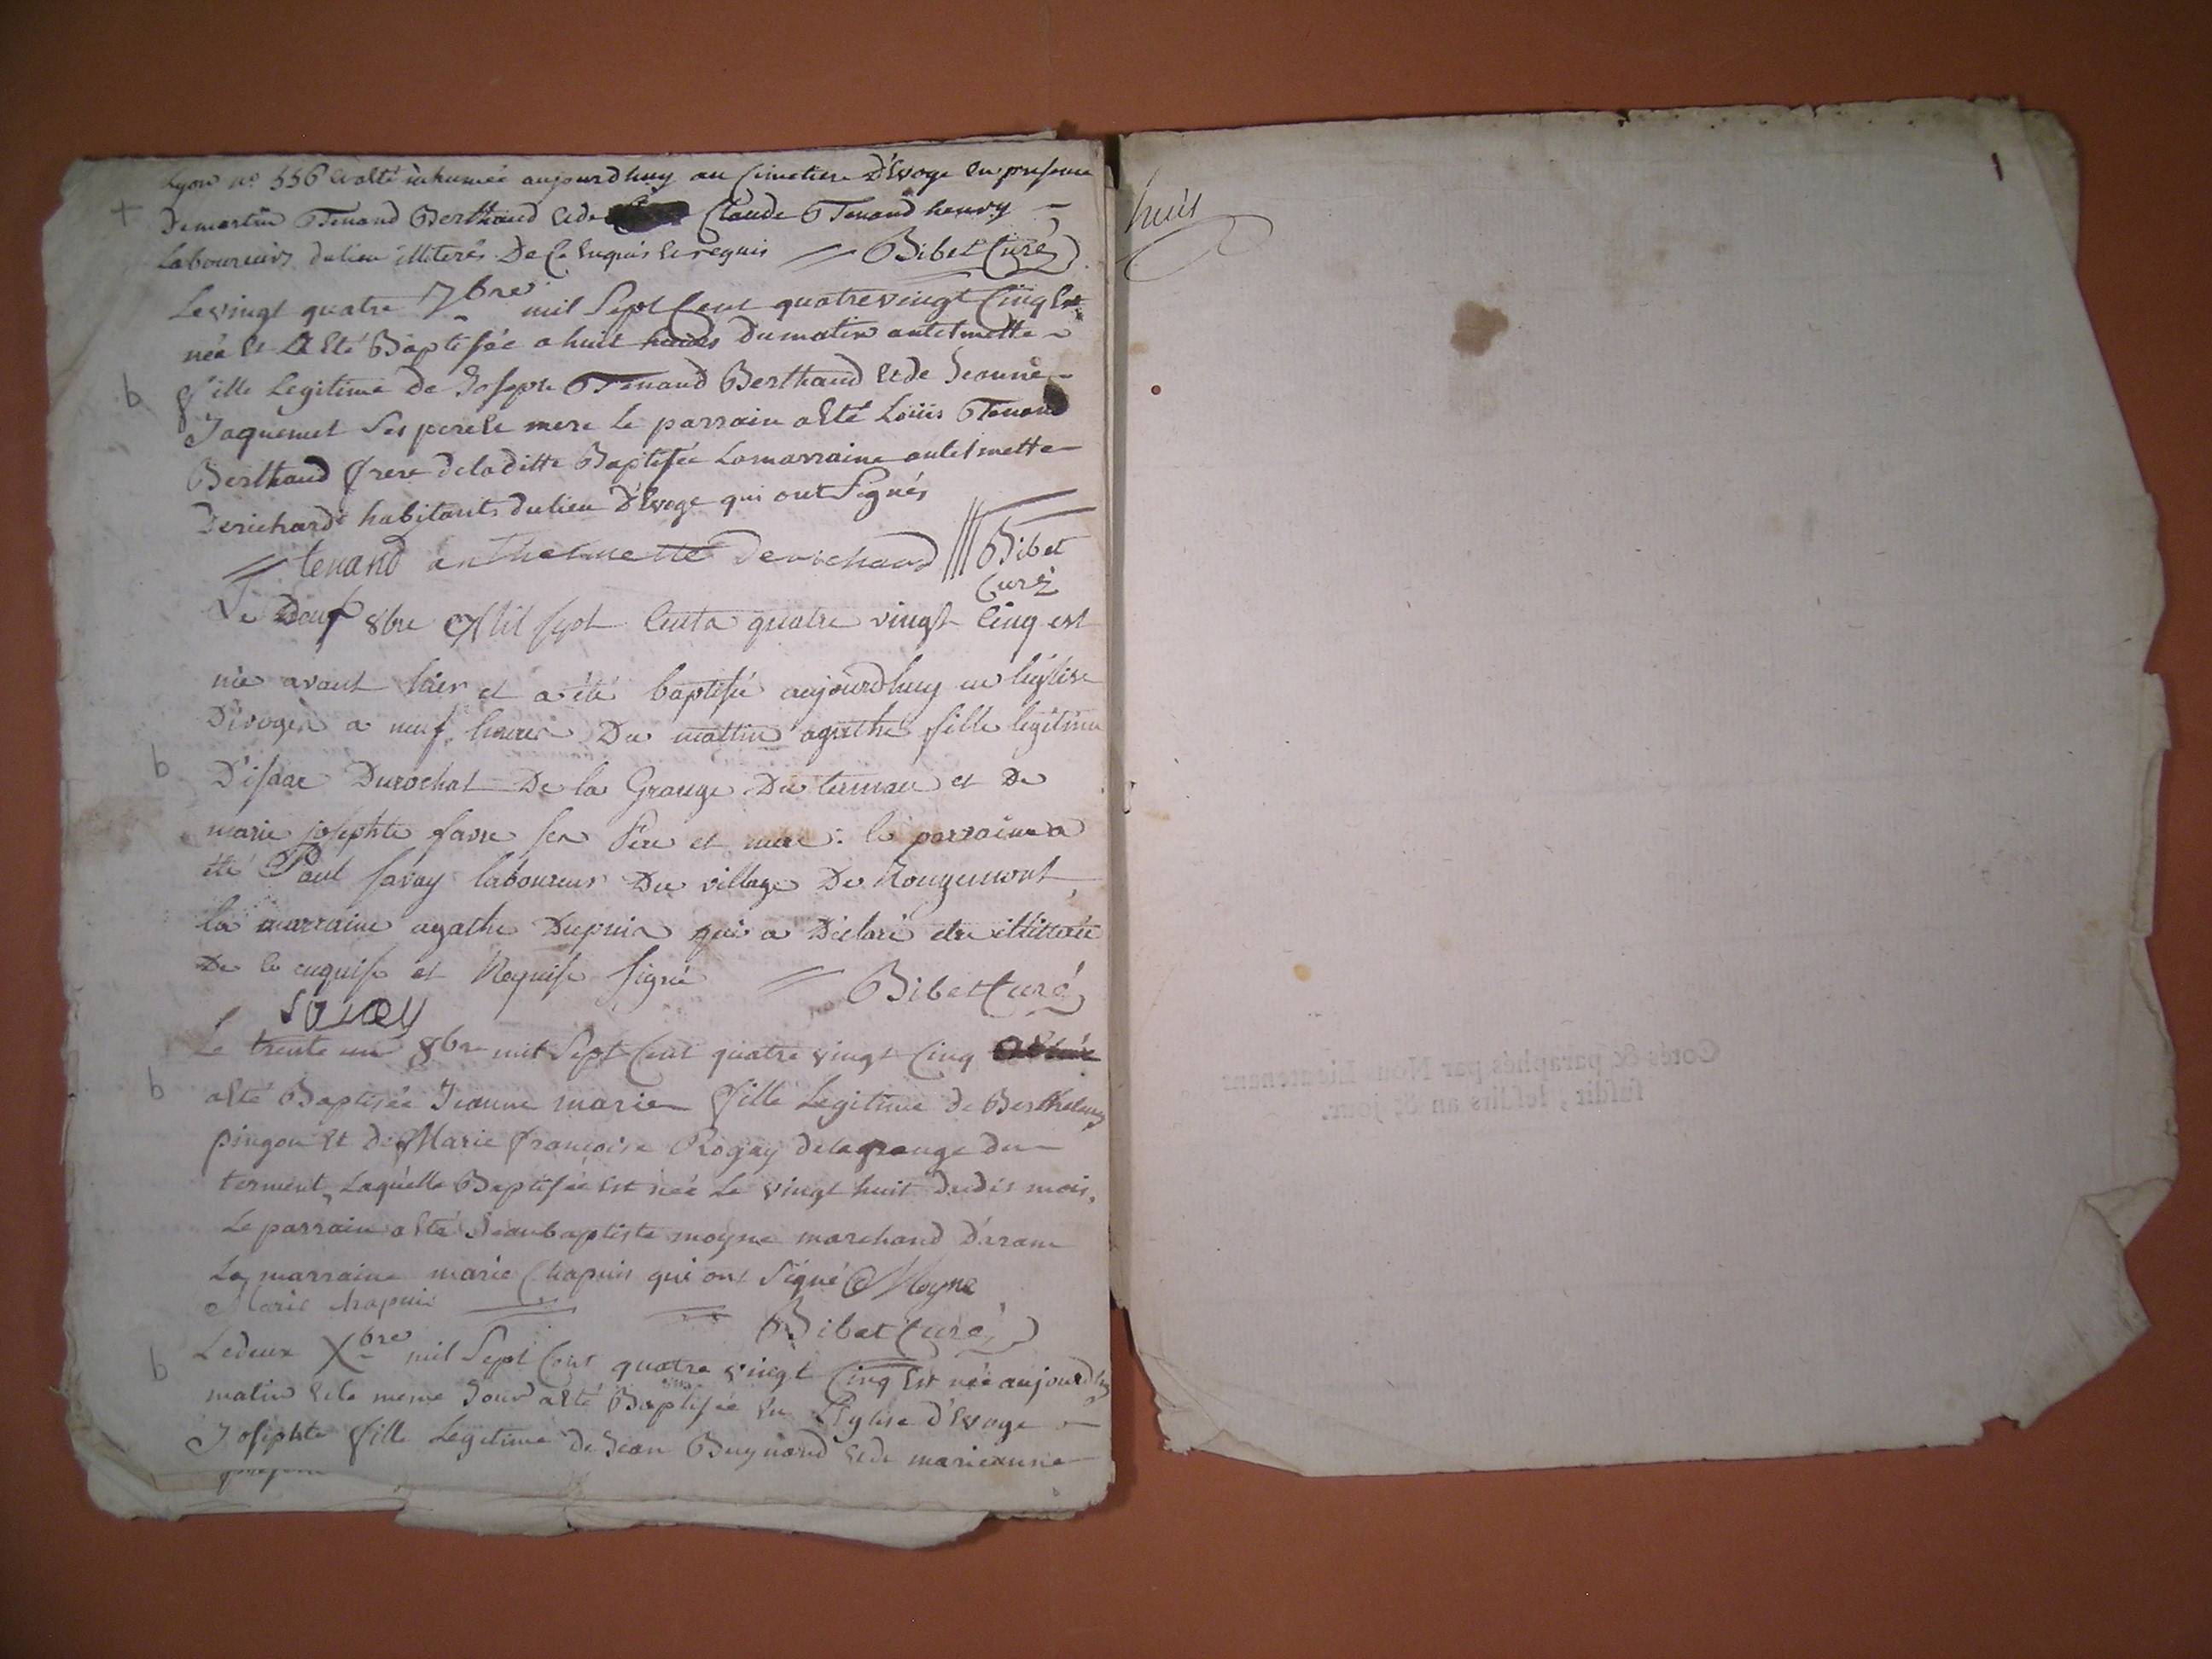 Lyon no 556 et a été inhumée aujourdhuy au Cimetiere d'Evoge en presence
De martin Tenand Berthaud et de Claude Tenand henry
Laboureurs du lieu illiterés De Ce enquis et requis Bibet Curé
huis
Le vingt quatre 7bre mil Sept Cent quatre vingt Cinq Est
née Et a Eté Baptisée a huit heures du matin antelmette
b
fille Legitime De Joseph Tenand Berthaud et de Jeanne
Jaquemet Ses pere et mere Le parrain a Eté Loüis Tenand
Berthaud frere de la ditte Baptisée La marraine antelmette
Derichard habitants du lieu D'Evoge qui ont Signés
tenand anthelmette derichard Bibet
Curé
Le Douse 8bre Mil sept Cents quatre vingt Cinq est
née avant hier et a été baptisée aujourdhuy en l'église
D'évoges a neuf heures Du mattin agathe fille legitime
b
D'isaac Durochat De la Grange Du terman et De
marie josephte favre ses Père et mere : le parrain a
été Paul savay laboureur Du village De Rougemont,
la marraine agathe Dupuis qui a Déclaré être illitérée
De ce enquise et Requise signé Bibet Curé
savay
Le trente un 8bre mil Sept Cent quatre vingt Cinq
b
a Eté Baptisée Jeanne marie fille Legitime de Berthelemy
pingon Et de Marie françoise Rogay de la grange du
terment, Laquelle Baptisée est née Le vingt huit dudit mois,
Le parrain a Eté Jean baptiste moyne marchand D'aranc
La marraine marie Chapuis qui ont Signé Moyne
Marie chapuis
Bibet Curé
b
Le deux Xbre mil Sept Cent quatre vingt Cinq Est née aujourdhuy
matin et le meme Jour a Eté Baptisée En L'Eglise d'Evoge
Josephte fille Legitime de Jean Buynand et de marieanne
Cotés & paraphés par Nous Lieutenant
susdit, lesdits an & jour.